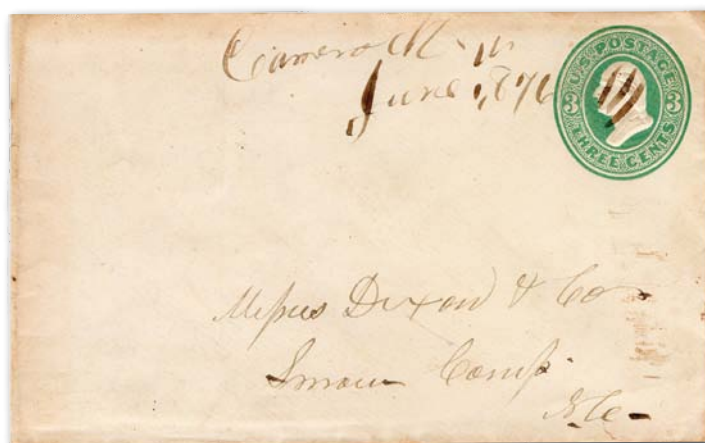 June 1876
U.S. POSTAGE
3 3
THREE CENTS
Messrs Dixon & Co
Snow Camp
N.C.